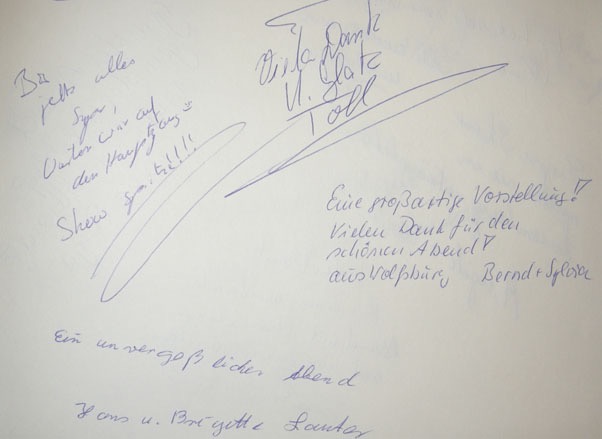 Bis
jetzt alles
super,
Warten wir auf
den Hauptgang
Show spitze!!!!
Vielen Dank
Toll
Eine großartige Vorstellung!!
Vielen Dank für den
schönen Abend!!
aus Wolfsburg Bernd + Sylvia
Ein unvergeßlicher Abend
Hans u. Brigitte